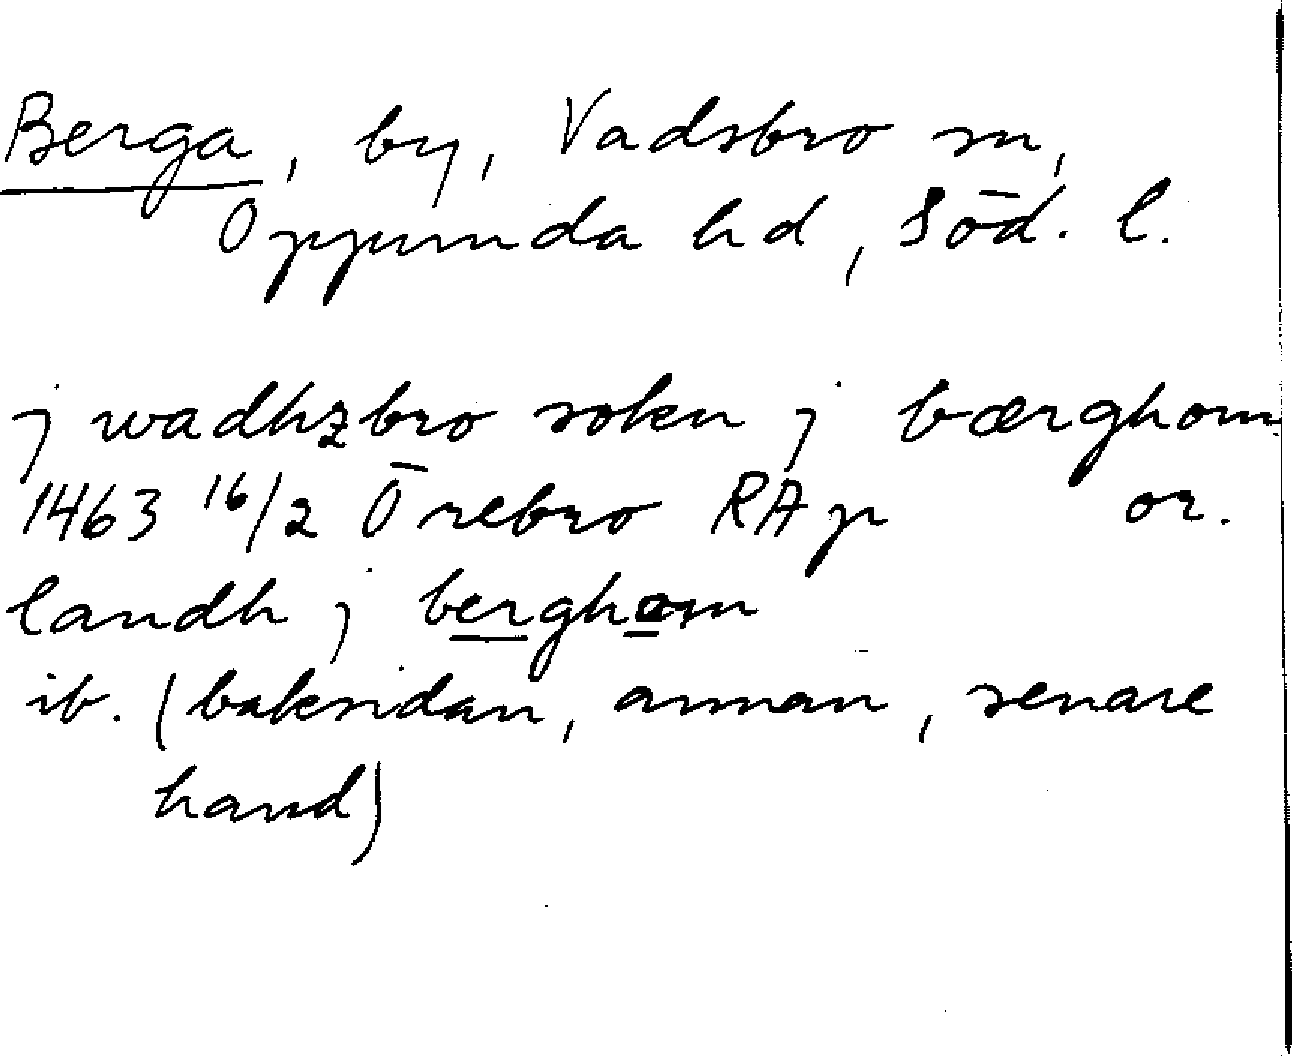 Berga, by, Vadsbro sn,
Oppunda hd, Söd. l.
j wadhzbro sokn j bærghom
1463 16/2 Örebro RAp or.
landh j berghom
ib. (baksidan, annan, senare
hand)